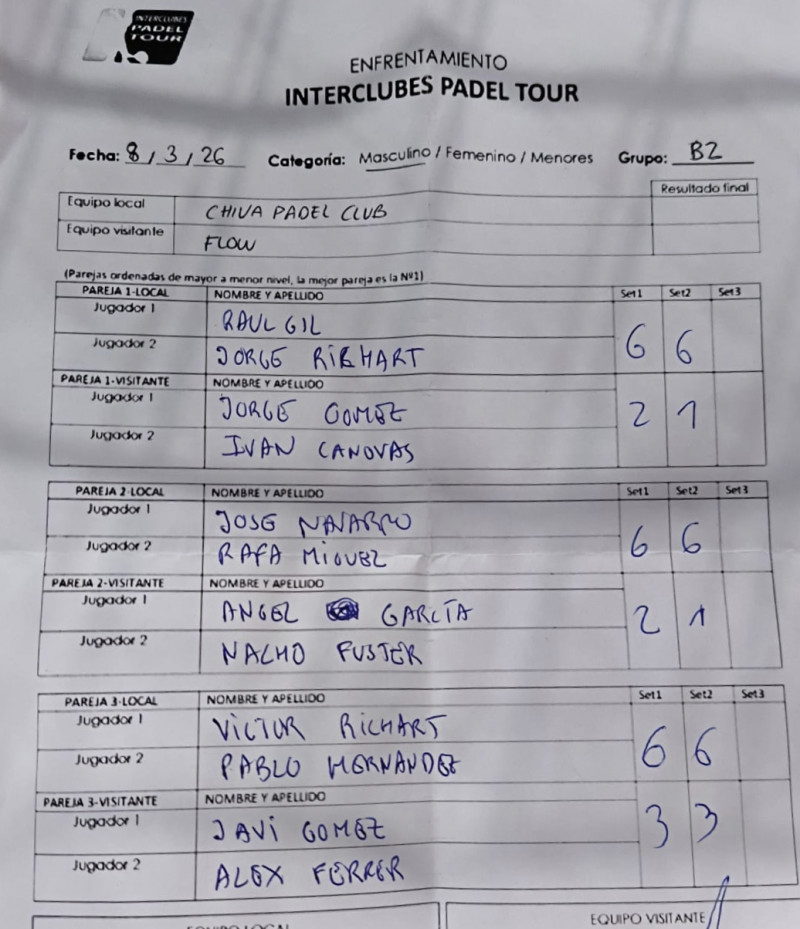 INTERCLUBES
PADEL
TOUR
ENFRENTAMIENTO
INTERCLUBES PADEL TOUR
Fecha: 8 / 3 / 26 Categoría: Masculino / Femenino / Menores Grupo: B2
Resultado final
Equipo local CHIVA PADEL CLUB
Equipo visitante FLOW
(Parejas ordenadas de mayor a menor nivel, la mejor pareja es la Nº1)
PAREJA 1-LOCAL NOMBRE Y APELLIDO Set1 Set2 Set3
Jugador 1 RAUL GIL
Jugador 2 JORGE RICHART 6 6
PAREJA 1-VISITANTE NOMBRE Y APELLIDO
Jugador 1 JORGE GOMEZ 2 1
Jugador 2 IVAN CANOVAS
PAREJA 2-LOCAL NOMBRE Y APELLIDO Set1 Set2 Set3
Jugador 1 JOSE NAVARRO
Jugador 2 RAFA MIGUEZ 6 6
PAREJA 2-VISITANTE NOMBRE Y APELLIDO
Jugador 1 ANGEL GARCÍA 2 1
Jugador 2 NACHO FUSTER
PAREJA 3-LOCAL NOMBRE Y APELLIDO Set1 Set2 Set3
Jugador 1 VICTUR RICHART
Jugador 2 PABLO HERNANDEZ 6 6
PAREJA 3-VISITANTE NOMBRE Y APELLIDO
Jugador 1 JAVI GOMEZ 3 3
Jugador 2 ALEX FERRER
EQUIPO LOCAL EQUIPO VISITANTE